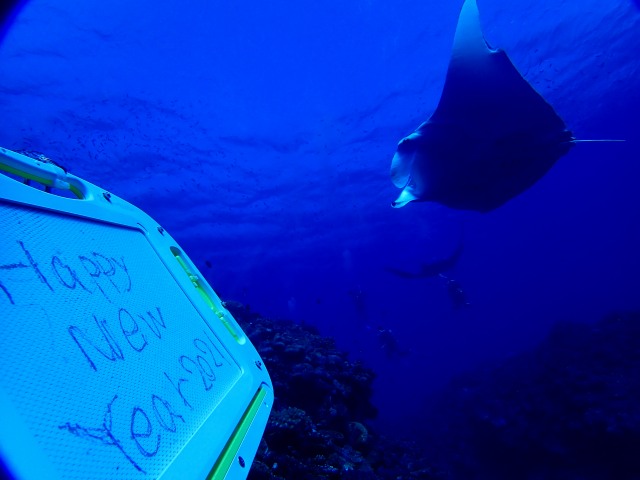 Happy
New
Year 2021